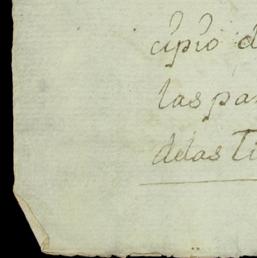 cipio d
las pa
delas Ti